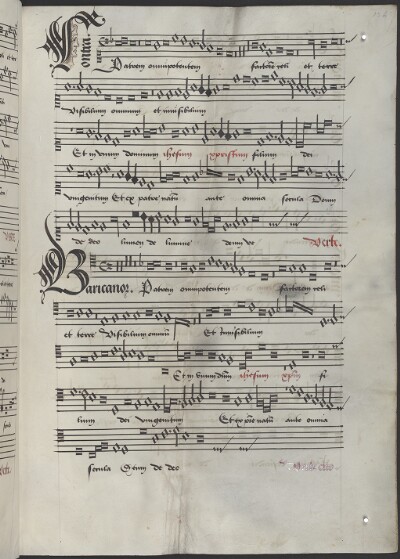 Contra
Patrem omnipotentem factorem celi et terre
Visibilium omnium et invisibilium
Et in unum dominum ihesum xpristum filium dei
unigenitum Et ex patre natum ante omnia secula Deum
de deo lumen de lumine deum ve Verte
Baricanor. Patrem omnipotentem factorem celi
et terre Visibilium omnium Et invisibilium
Et in unum dnm ihesum xpm fi
lium dei unigenitum Et ex pre natum ante omnia
secula Deum de deo